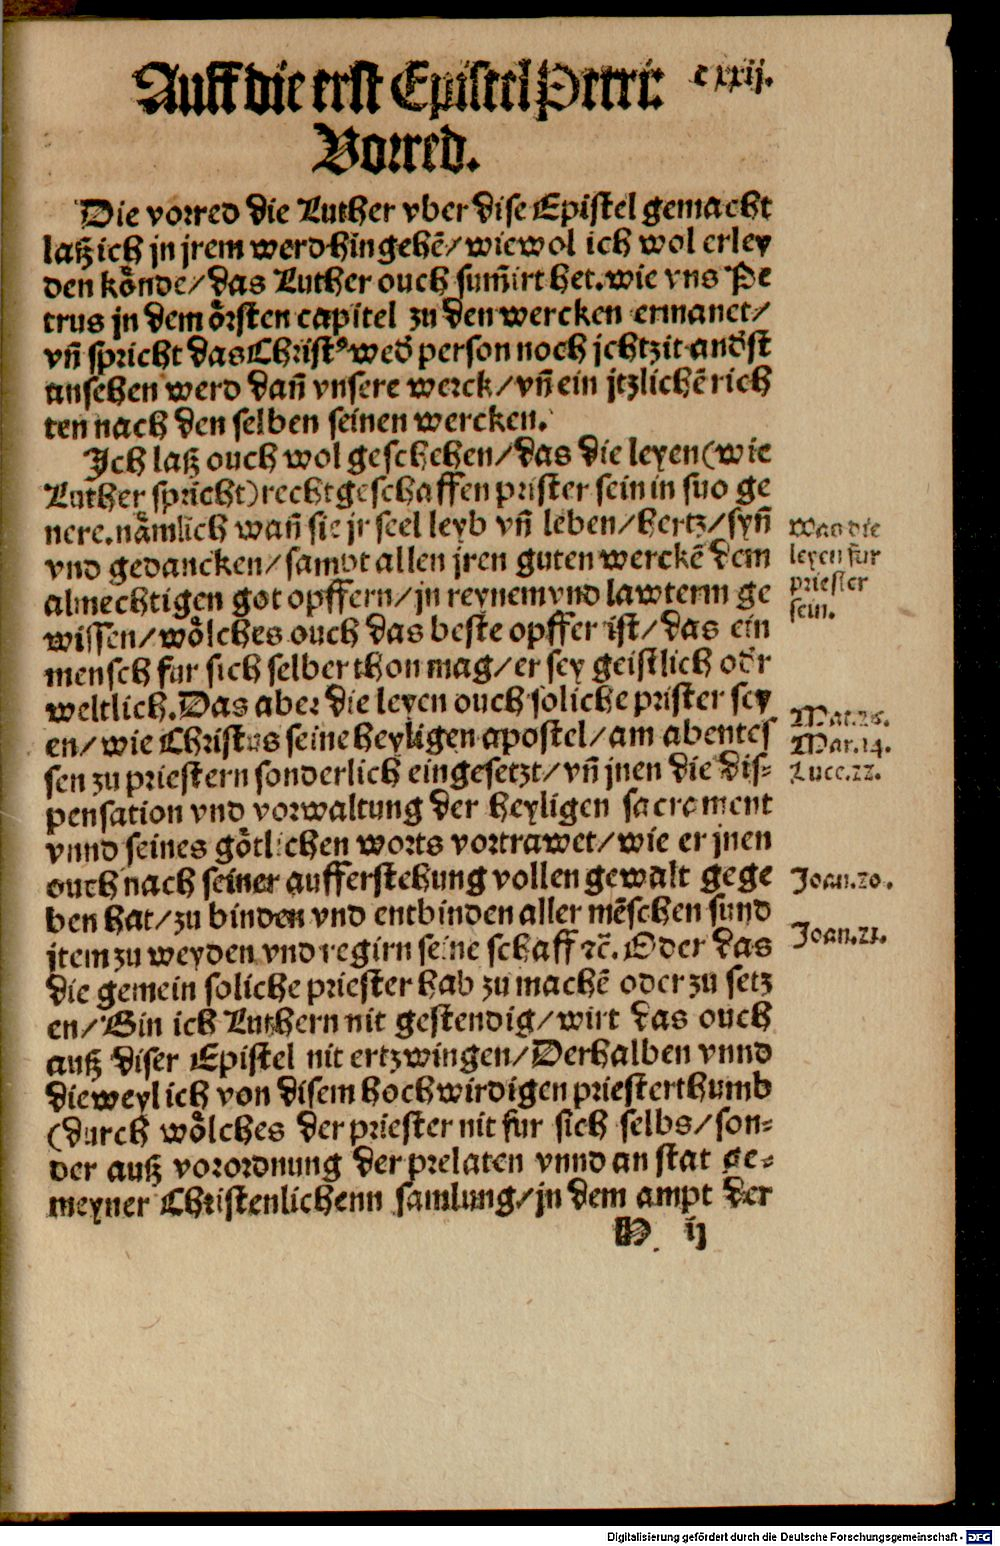 Auff die erst Epistel Petri: cxxij.
Vorred.
Die vorred die Luther vber dise Epistel gemacht
laß ich jn jrem werd hingehẽ/ wiewol ich wol erley
den koͤnde/ das Luther ouch sum̃irt het. wie vns Pe
trus jn dem oͤrsten capitel zu den wercken ermanet/
vñ spricht das Christꝰ wed̕ person noch jchtzit and̕st
ansehen werd dañ vnsere werck/ vñ ein jtzlichẽ rich
ten nach den selben seinen wercken.
Ich laß ouch wol geschehen/ das die leyen (wie
Luther spricht) recht geschaffen prister sein in suo ge
nere. naͤmlich wañ sie jr seel leyb vñ leben/ hertz/ syñ
vnd gedancken/ sampt allen jren guten werckẽ dem
almechtigen got opffern/ jn reynem vnd lawterm ge
wissen/ woͤlches ouch das beste opffer ist/ das ein
mensch fur sich selber thon mag/ er sey geistlich od̕r
weltlich. Das aber die leyen ouch soliche prister sey
en/ wie Christus seine heyligen apostel/ am abentes
sen zu priestern sonderlich eingesetzt/ vñ jnen die dis⸗
pensation vnd vorwaltung der heyligen sacrament
vnnd seines goͤtlichen worts vortrawet/ wie er jnen
ouch nach seiner aufferstehung vollen gewalt gege
ben hat/ zu binden vnd entbinden aller mẽschen sund
jtem zu weyden vnd regirn seine schaff ꝛc̃. Oder das
die gemein soliche priester hab zu machẽ oder zu setz
en/ Bin ich Luthern nit gestendig/ wirt das ouch
auß diser Epistel nit ertzwingen/ Derhalben vnnd
dieweyl ich von disem hochwirdigen priesterthumb
(durch woͤlches der priester nit fur sich selbs/ son⸗
der auß vorordnung der prelaten vnnd an stat ge⸗
meyner Christenlichenn samlung/ jn dem ampt der
ij
Was die
leyen fur
priester
sein.
Mat.26.
Mar.14.
Luce.22.
Joan.20.
Joan.21.
Digitalisierung gefördert durch die Deutsche Forschungsgemeinschaft - DFG